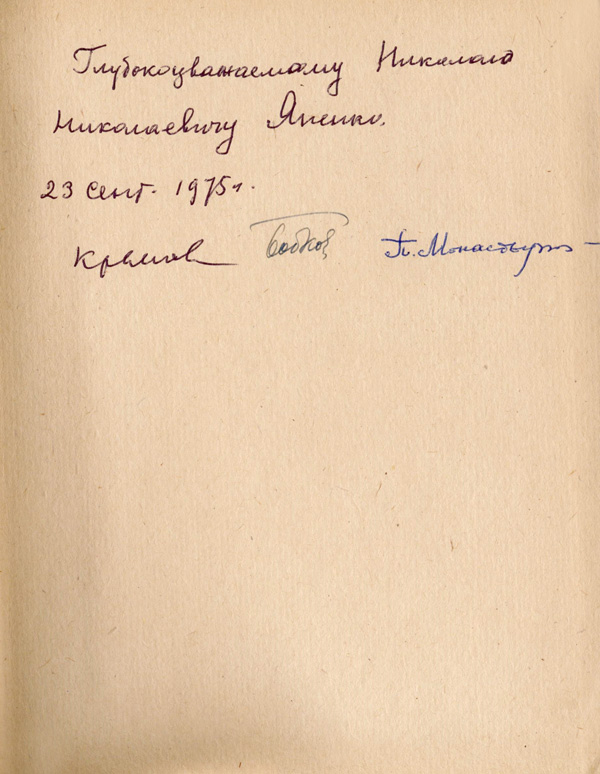 Глубокоуважаемому Николаю
Николаевичу Яненко.
23 сент. 1975 г.
Крылов Бобков П. Монастырно